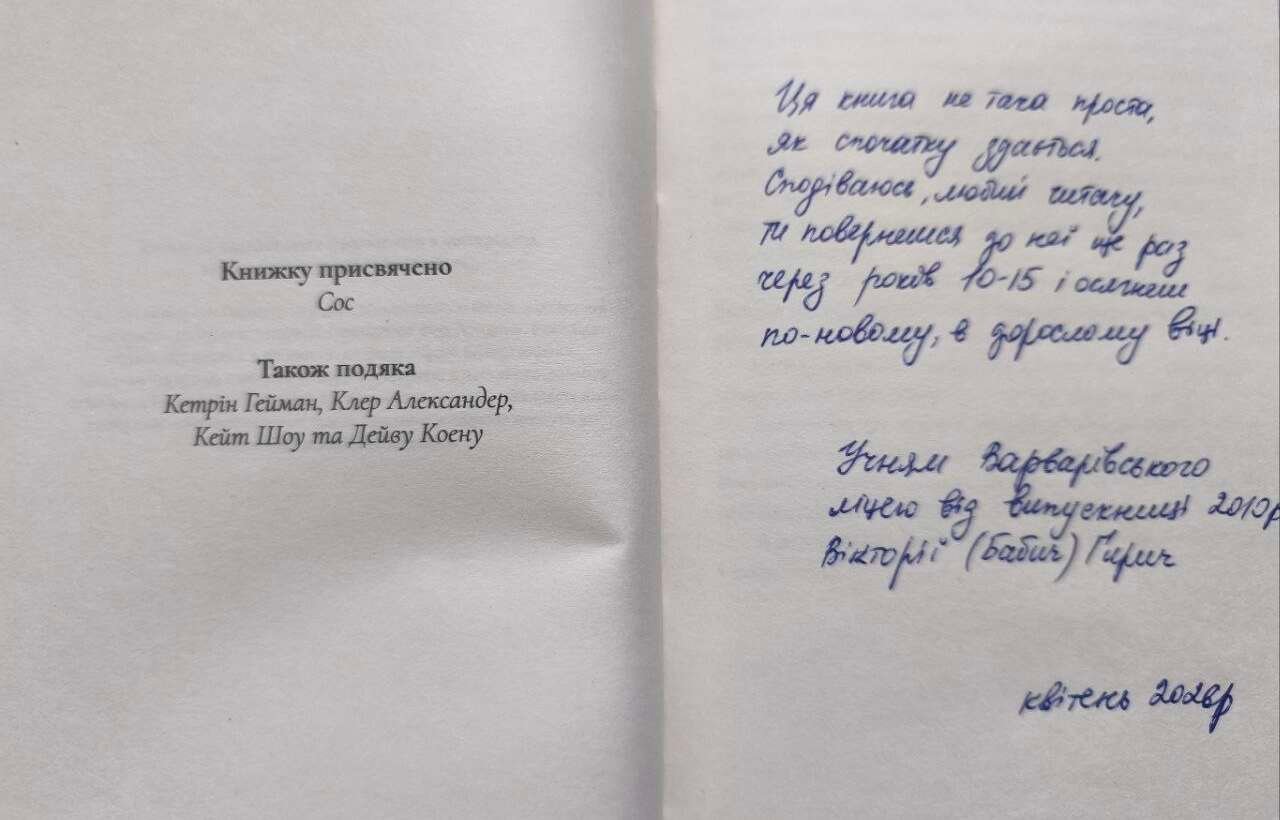 Книжку присвячено
Сос
Також подяка
Кетрін Гейман, Клер Александер,
Кейт Шоу та Дейву Коену
Ця книга не така проста,
як спочатку здається.
Сподіваюсь, любий читачу,
ти повернешся до неї ще раз
через років 10-15 і осягнеш
по-новому, в дорослому віці.
Учням Варварівського
ліцею від випускниці 2010р
Вікторії (Бабич)
квітень